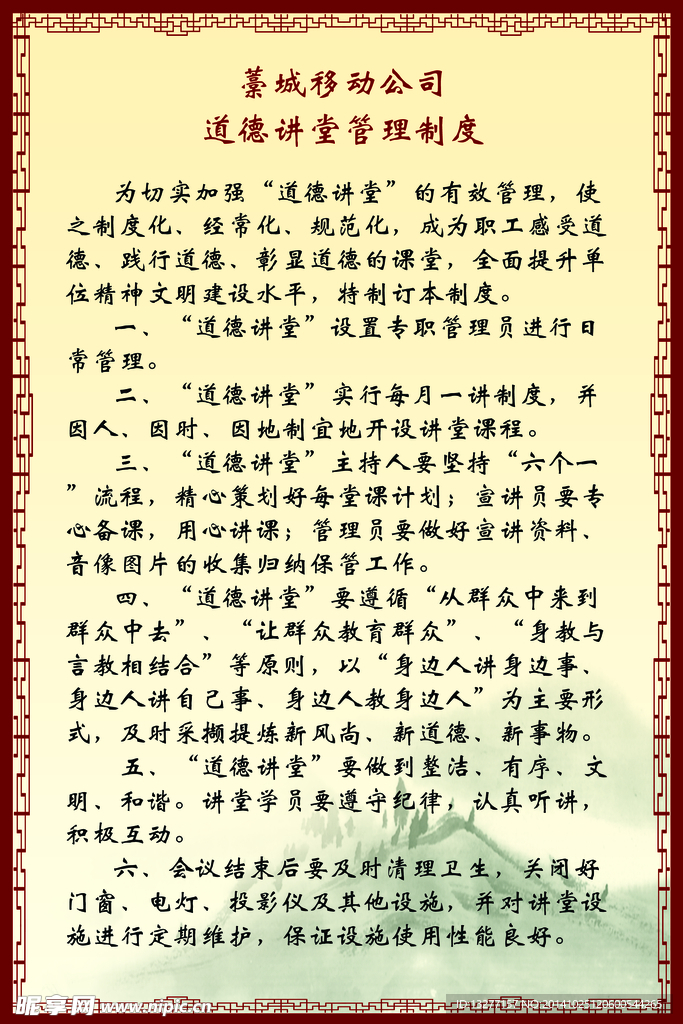 藁城移动公司
道德讲堂管理制度
为切实加强“道德讲堂”的有效管理，使
之制度化、经常化、规范化，成为职工感受道
德、践行道德、彰显道德的课堂，全面提升单
位精神文明建设水平，特制订本制度。
一、“道德讲堂”设置专职管理员进行日
常管理。
二、“道德讲堂”实行每月一讲制度，并
因人、因时、因地制宜地开设讲堂课程。
三、“道德讲堂”主持人要坚持“六个一
”流程，精心策划好每堂课计划；宣讲员要专
心备课，用心讲课；管理员要做好宣讲资料、
音像图片的收集归纳保管工作。
四、“道德讲堂”要遵循“从群众中来到
群众中去”、“让群众教育群众”、“身教与
言教相结合”等原则，以“身边人讲身边事、
身边人讲自己事、身边人教身边人”为主要形
式，及时采撷提炼新风尚、新道德、新事物。
五、“道德讲堂”要做到整洁、有序、文
明、和谐。讲堂学员要遵守纪律，认真听讲，
积极互动。
六、会议结束后要及时清理卫生，关闭好
门窗、电灯、投影仪及其他设施，并对讲堂设
施进行定期维护，保证设施使用性能良好。
昵享网 www.nipic.cn